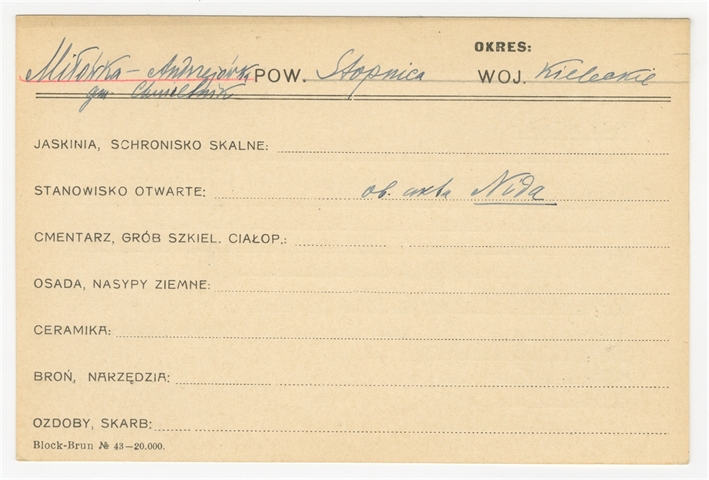 OKRES:
Miłówka - Andrzejówka POW. Stopnica WOJ. Kieleckie
gm. Chmielnik
JASKINIA, SCHRONISKO SKALNE:
STANOWISKO OTWARTE: ob. akta Nida
CMENTARZ, GRÓB SZKIEL. CIAŁOP.:
OSADA, NASYPY ZIEMNE:
CERAMIKA:
BROŃ, NARZĘDZIA:
OZDOBY, SKARB:
Block-Brun № 43—20.000.